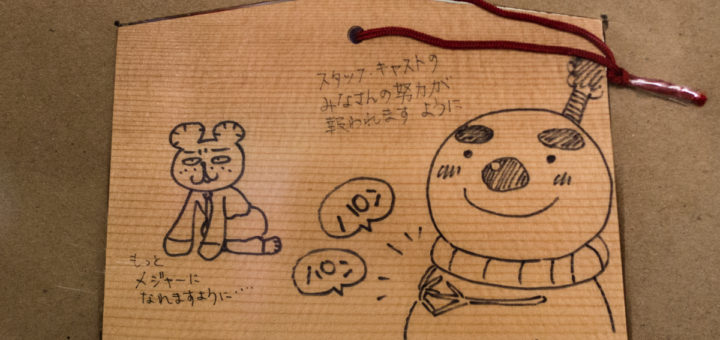 スタッフ・キャストの
みなさんの努力が
報われます ように
ハロン
ハロン
もっと
メジャーに
なれますように‥‥